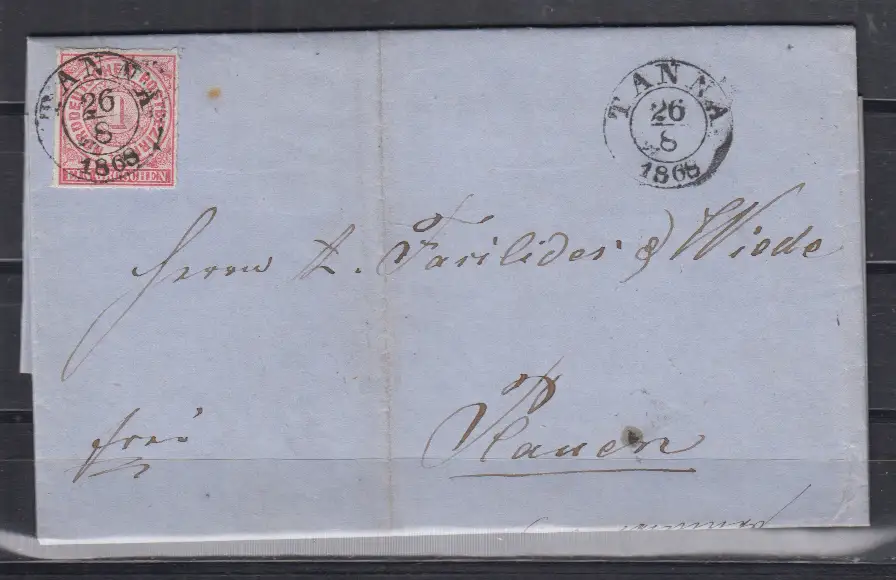 NORDDEUTSCHER POSTBEZIRK
1
EIN GROSCHEN
TANNA
26
8
1868
TANNA
26
8
1868
Herrn A. Facilides & Wiede
Plauen
frei